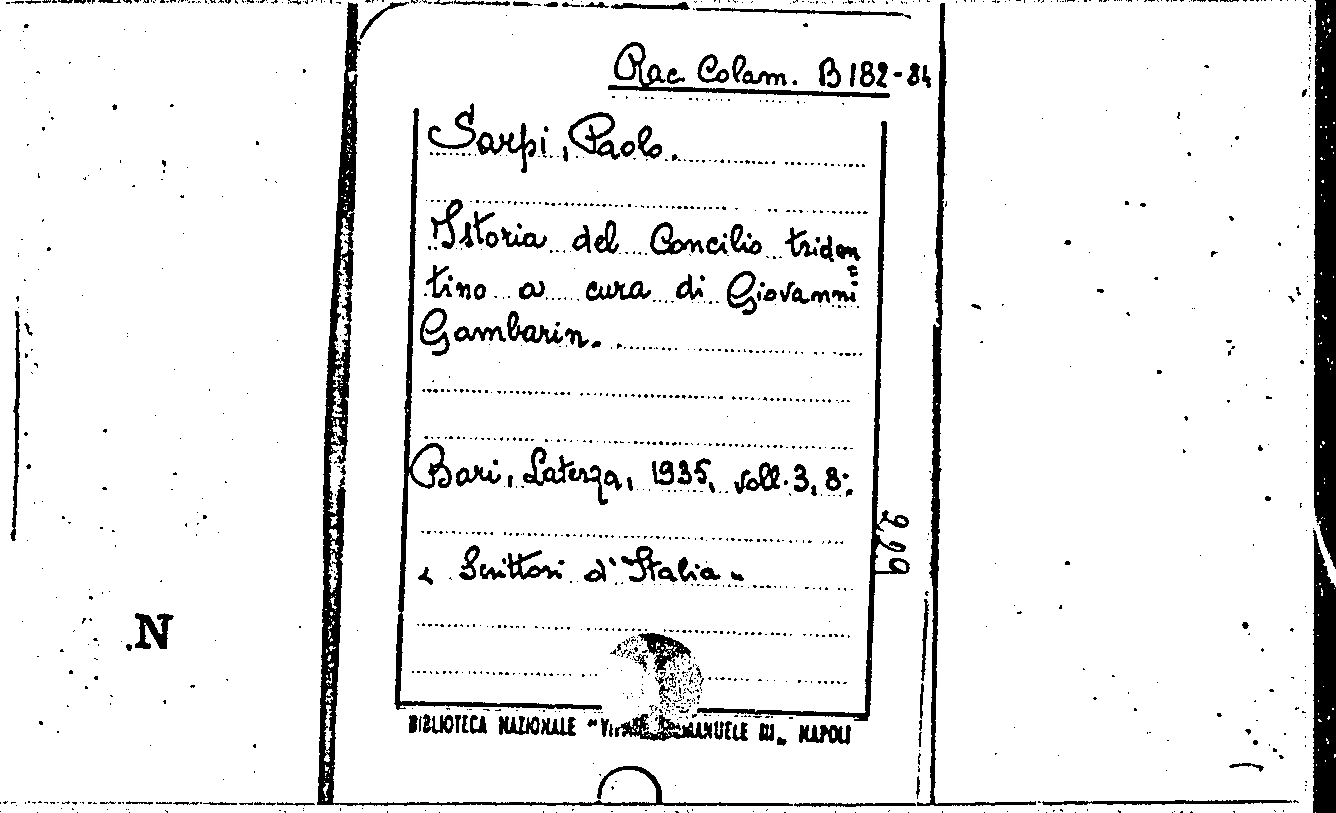 Rac. Colam. B 182-84
Sarpi, Paolo.
Istoria del Concilio triden=
tino a cura di Giovanni
Gambarin.
Bari, Laterza, 1935, voll. 3, 8°.
299
« Scrittori d'Italia »
.N
BIBLIOTECA NAZIONALE "VITTORIO EMANUELE III„ NAPOLI